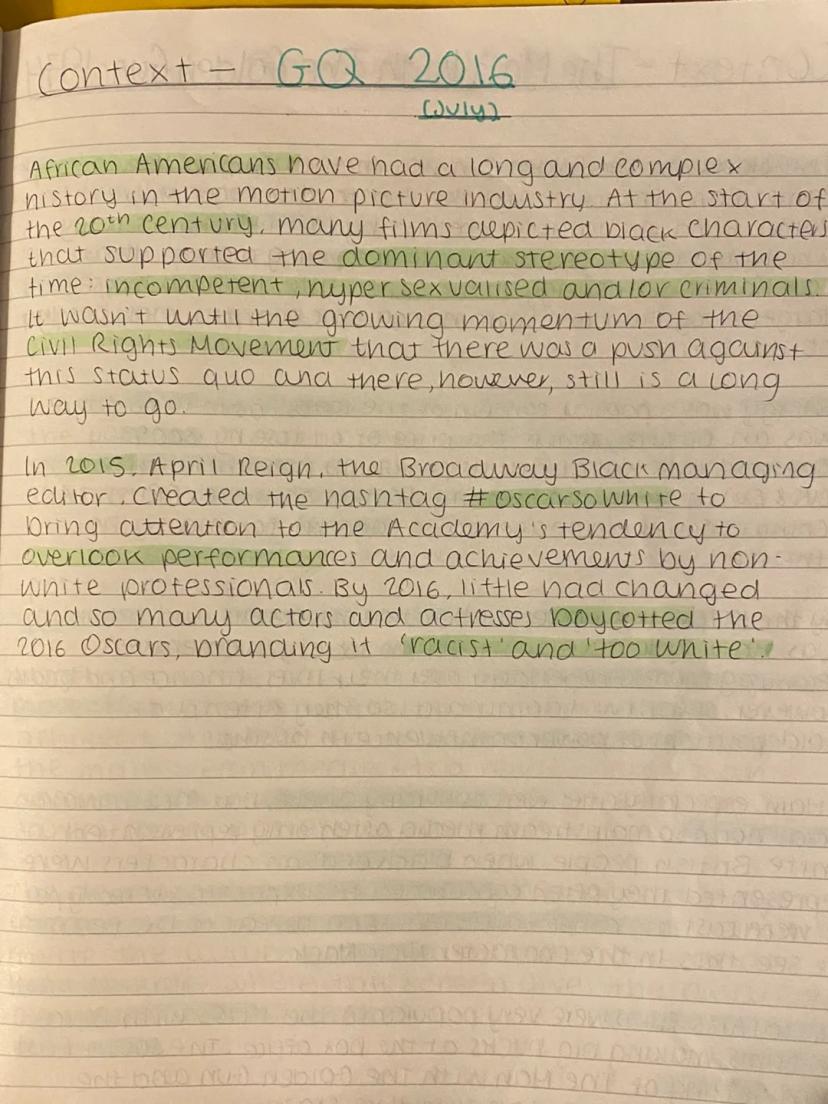 Context - GQ 2016
(July)
African Americans have had a long and complex
history in the motion picture industry. At the start of
the 20th century, many films depicted black characters
that supported the dominant stereotype of the
time: incompetent, hyper sexualised and/or criminals.
It wasn't until the growing momentum of the
Civil Rights Movement that there was a push against
this status quo and there, however, still is a long
way to go.
In 2015, April Reign, the Broadway Black managing
editor, created the hashtag #oscarsowhite to
bring attention to the Academy's tendency to
overlook performances and achievements by non-
white professionals. By 2016, little had changed
and so many actors and actresses boycotted the
2016 Oscars, branding it 'racist' and 'too white'.